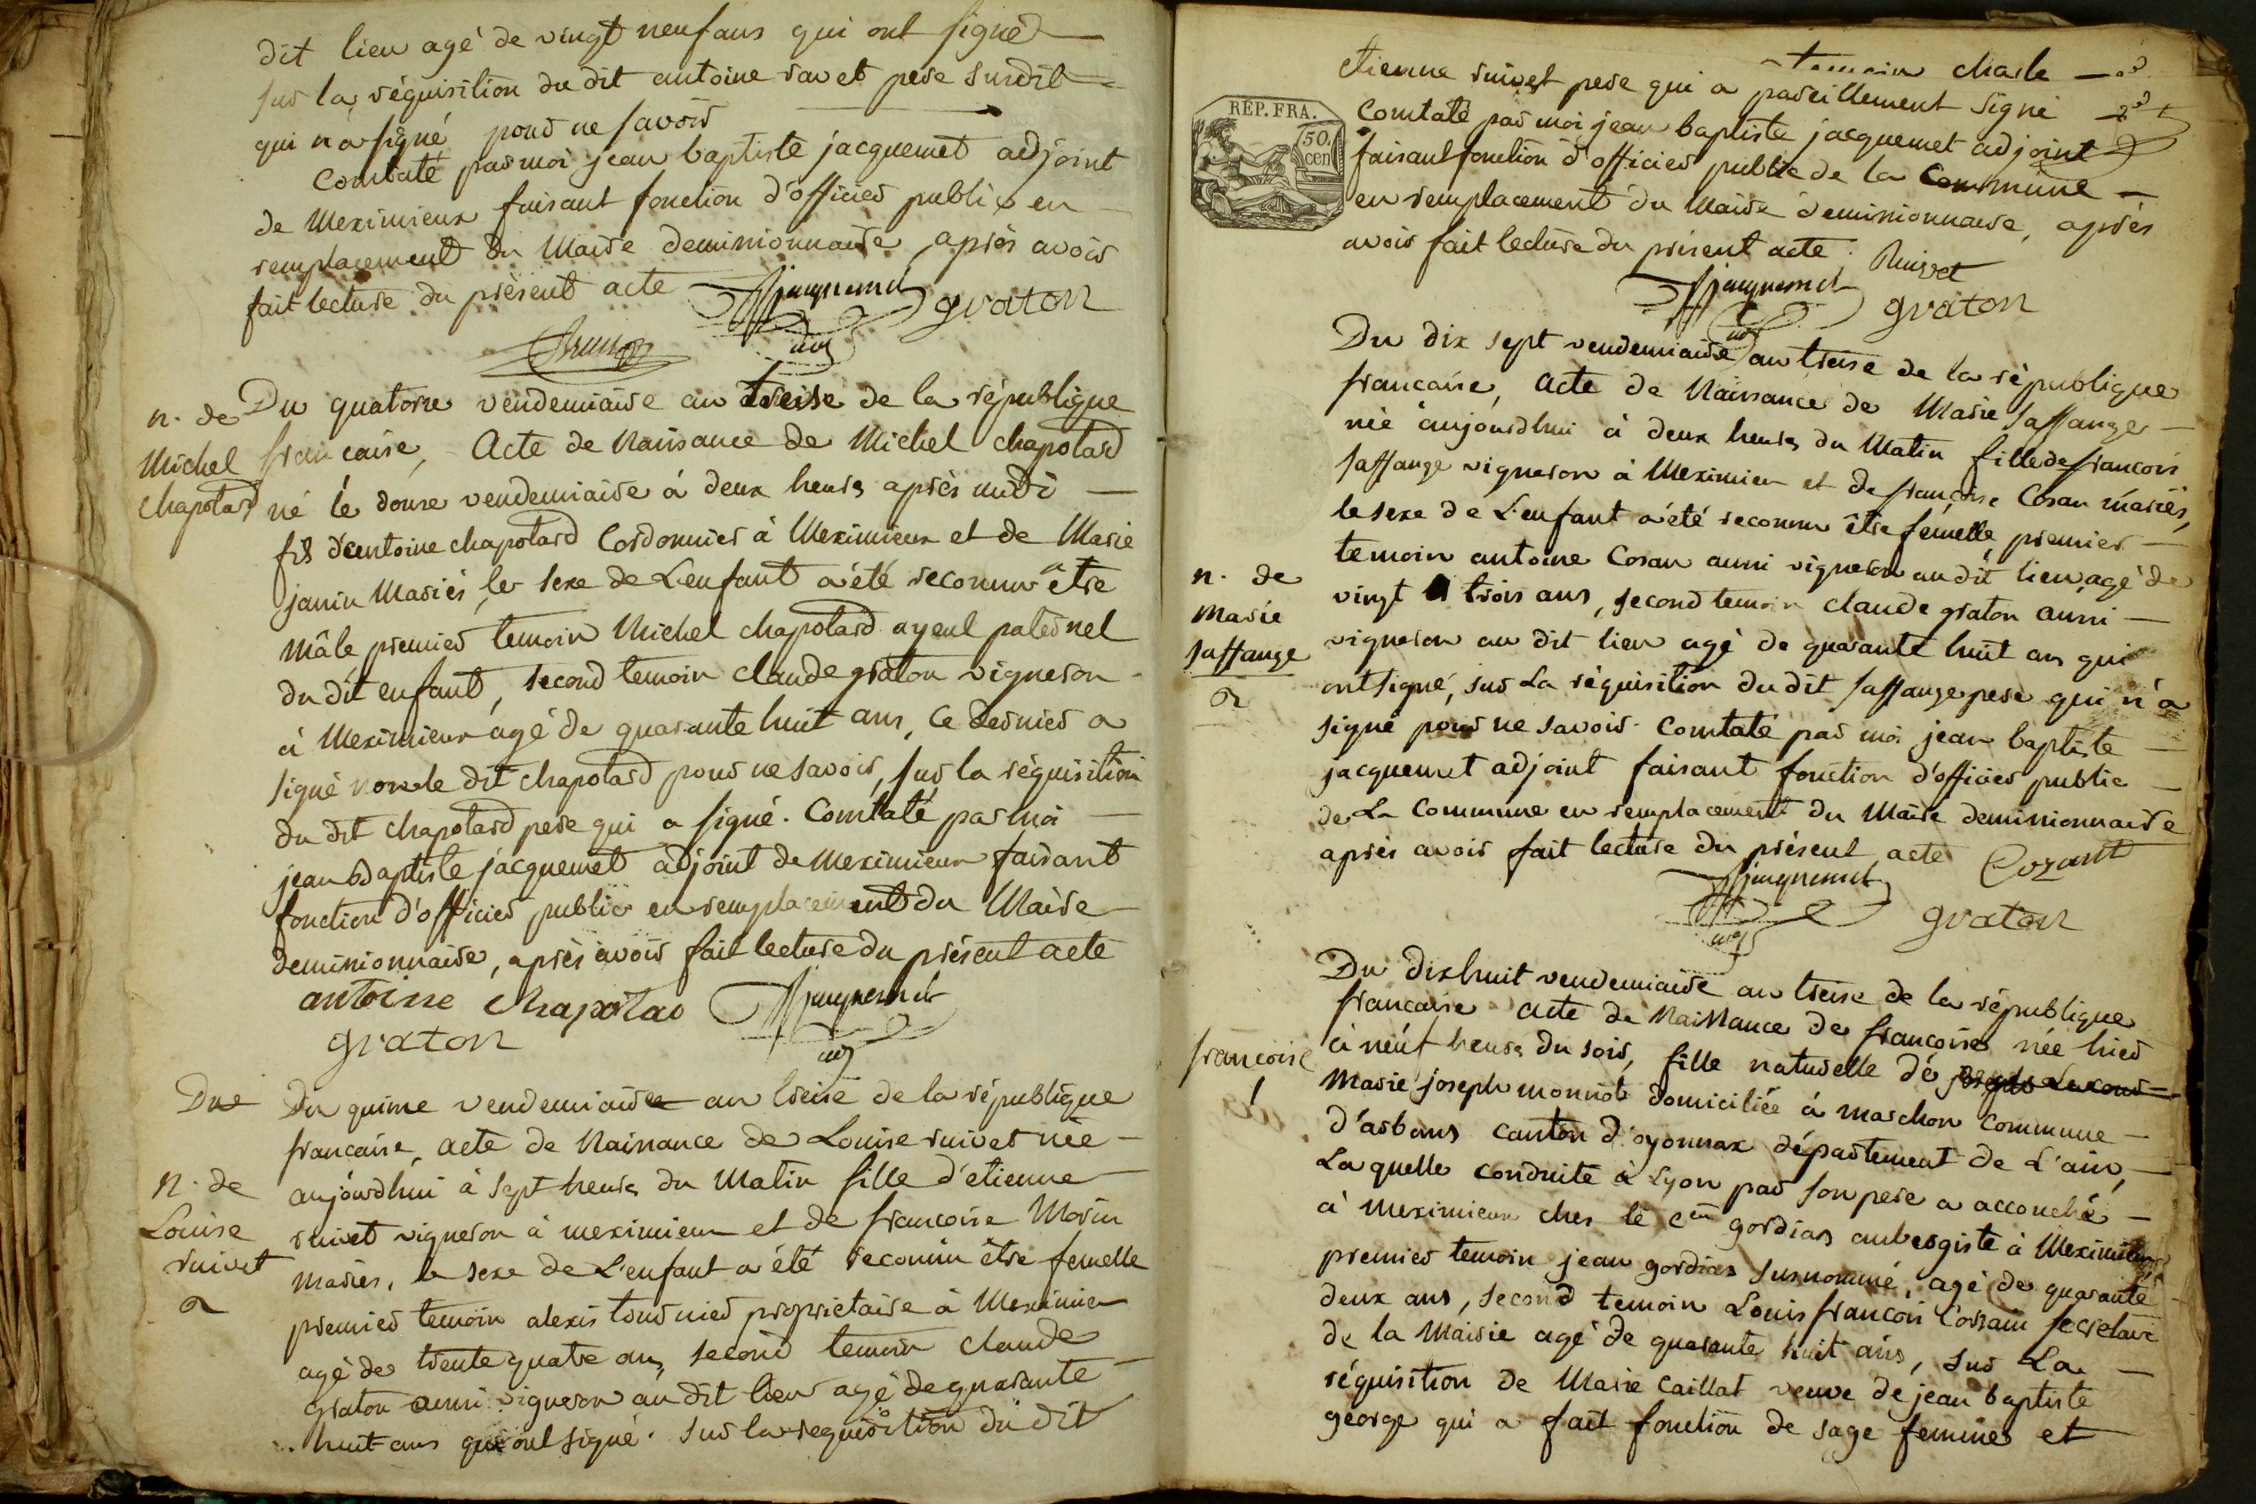 dit lieu agé de vingt neuf ans qui ont signé
sur la réquisition du dit antoine ravet pere susdit
qui n'a signé pour ne savoir
Constaté par moi jean baptiste jacquemet adjoint
de Meximieux faisant fonction d'officier public en
remplacement du Maire demissionnaire, après avoir
fait lecture du présent acte
jacquemet
graton
adj
n. de
Michel
chapotard
Du quatorze vendemiaire an treise de la république
francaise, Acte de Naissance de Michel chapotard
né le douze vendemiaire à deux heures après midi
fils d'antoine chapotard Cordonnier à Meximieux et de Marie
janin Mariés, le sexe de L'enfant a été reconnu être
Mâle premier temoin Michel chapotard ayeul paternel
du dit enfant, second temoin claude graton vigneron
à Meximieux agé de quarante huit ans, ce dernier a
signé non le dit chapotard pour ne savoir, sur la réquisition
du dit chapotard pere qui a signé. Constaté par moi
jean Baptiste jacquemet adjoint de Meximieux faisant
fonction d'officier public en remplacement du Maire
demissionnaire, après avoir fait lecture du présent acte
antoine Chapotar jacquemet
graton
adj
Du
n. de
Louise
ruivet
Du quinze vendemiaire an treise de la république
francaise, acte de Naissance de Louise ruivet née
aujourdhui à sept heures du Matin fille d'etienne
ruivet vigneron à meximieux et de francoise Morin
Mariés, le sexe de L'enfant a été reconnu être femelle
premier temoin alexis tournier proprietaire à Meximieu
agé de trente quatre ans, second temoin claude
graton aussi vigneron au dit lieu agé de quarante
huit ans qui ont signé. sur la requisition du dit
temoin charle
etienne ruivet pere qui a pareillement signé
REP. FRA.
50.
cen
Constaté par moi jean baptiste jacquemet adjoint
faisant fonction d'officier public de la Commune
en remplacement du Maire demissionnaire, après
avoir fait lecture du présent acte. Ruivet
jacquemet
graton
adj
Du dix sept vendemiaire an treise de la république
francaise, Acte de Naissance de Marie saffange
née aujourdhui à deux heures du Matin fille de francois
saffange vigneron à Meximieu et de françoise Cosan mariés,
le sexe de L'enfant a été reconnu être femelle, premier
temoin antoine Cosan aussi vigneron au dit lieu agé de
vingt trois ans, second temoin claude graton aussi
vigneron au dit lieu agé de quarante huit ans qui
ont signé, sur La réquisition du dit saffange pere qui n'a
signé pour ne savoir. Constaté par moi jean baptiste
jacquemet adjoint faisant fonction d'officier public
de La Commune en remplacement du Maire demissionnaire
après avoir fait lecture du présent acte Cozant
n. de
Marie
saffange
jacquemet
graton
adj
Du dixhuit vendemiaire an treise de la république
francaise acte de Naissance de françoise née hier
à neuf heures du soir, fille naturelle de
Marie joseph monnot domiciliée à marchon Commune
d'arbens canton d'oyonnax département de L'ain,
La quelle conduite à Lyon par son pere a accouché
à Meximieux ches le cen gordian aubergiste à Meximieux
premier temoin jean gordian susnommé, agé de quarante
deux ans, second temoin Louis francois Corsain secretaire
de la Mairie agé de quarante huit ans, sur La
réquisition de Marie Caillat veuve de jean baptiste
george qui a fait fonction de sage femme et
francoise